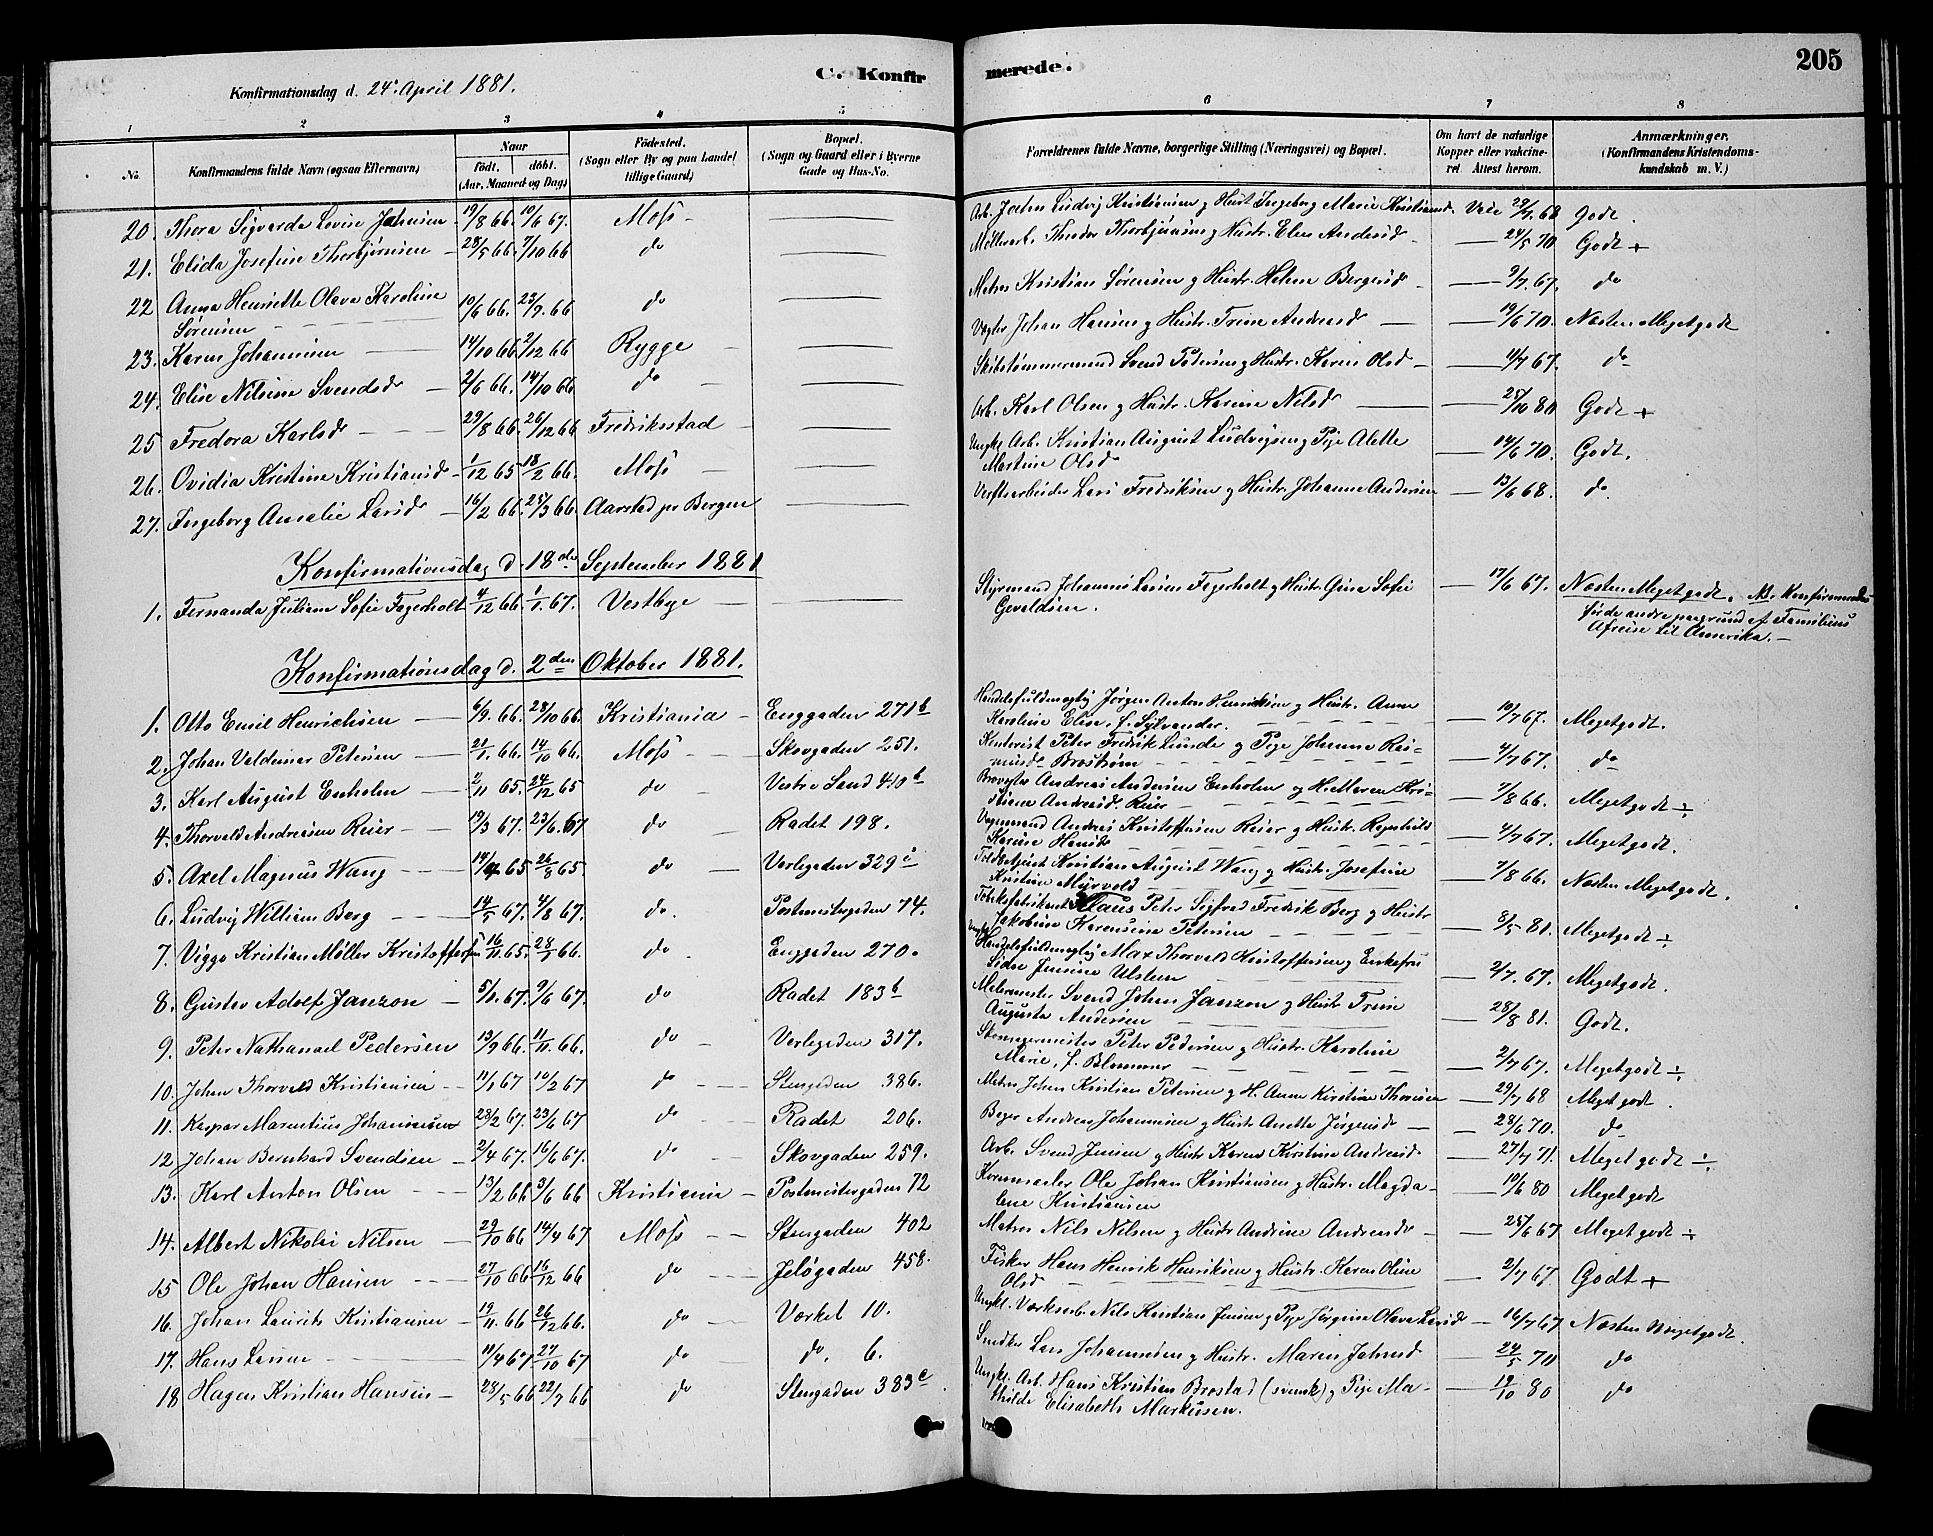 205
C. Konfir
merede.
Konfirmationsdag d. 24. April 1881.
1 2 3 4 5 6 7 8
No. Konfirmandens fulde Navn (ogsaa Efternavn) Naar født, døbt. (Aar, Maaned og Dag) Fødested. (Sogn eller By og paa Landet tillige Gaard) Bopæl. (Sogn og Gaard eller i Byerne Gade og Hus-No.
Forældrenes fulde Navne, borgerlige Stilling (Næringsvei) og Bopæl. Om havt de naturlige Kopper eller vakcineret Attest herom. Anmærkninger. (Konfirmandens Kristendomskundskab m. V.)
20. Thora Sigvarda Lovise Johnsen 19/8 66. 10/6 67. Moss
Arb. John Ludvig Kristiansen g Hust Ingeborg Marie Kristiansd. 29/7 68 Godt.
21. Elida Josefine Thorbjørnsen 28/5 66. 7/10 66 do
Møllearb. Theodor Thorbjørnsen g Hustr. Elen Andersd 24/5 70 Godt +
22 Anna Henriette Olava Karoline Sørensen 10/6 66. 23/9 66 do
Matros Kristian Sørensen g Hustr. Helene Bergersd 9/7 67. do
23. Karen Johannesen 14/10 66 2/12 66 Rygge
Vægter Johan Hansen g Hustr. Trine Andreasd 19/6 70. Næsten Megetgodt
24. Elise Nilsine Svendsd 2/6 66. 14/10 66 do
Skibstømmermand Svend Pedersen g Hustr. Karen Olsd 4/7 67. do
25 Fredora Karlsd 29/8 66. 26/12 66 Fredriksstad
Arb. Karl Olsen g Hustr. Karine Nilsd 25/10 80 Godt +
26. Ovidia Kristine Kristiansd 1/12 65 18/2 66. Moss
Ungkl. Arb. Kristian August Ludvigsen g Pige Alette Martine Olsd 14/6 70. Godt.
27. Ingeborg Amalie Larsd 16/2 66. 25/3 66. Aarstad pr Bergen
Verftsarbeider Lars Fredriksen g Hustr. Johanne Andersen 13/6 68. do.
Konfirmationsdag d. 18de September 1881
1. Fernanda Juliane Sofie Fagerholt 4/12 66. 1/1. 67. Vestbye
Styrmand Johannes Larsen Fagerholt g Hustr. Gina Sofie Gevaldsen. 17/6 67. Næsten Megetgodt. NB. Konfirmeredes før de andre paa grund af Familiens Afreise til Amerika.
Konfirmationsdag d. 2den Oktober 1881.
1. Otto Emil Henrichsen 6/9. 66. 28/10 66. Kristiania Enggaden 271 b
Handelsfuldmægtig Jørgen Anton Henriksen g Hustr. Anne Karoline Elise, f. Sylvander. 10/7 67. Megetgodt.
2. Johan Valdemar Petersen 21/1. 66. 14/10 66. Moss Skovgaden 251.
Kontorist Peter Fredrik Lunde g Pige Johanne Brostrøm 4/7 67. do
3. Karl August Enholm 2/11 65. 24/12 65 do Vestre Sand 410 b
Andreas Andersen Enholm g H. Maren Kristine Andreasd. Reier 7/8 66. Megetgodt ÷
4. Thorvald Andreasen Reier 19/3 67. 23/6. 67 do Radet 198.
Vognmand Andreas Kristoffersen Reier g Hustr. Regnhild Karine Hansd 4/7 67. Megetgodt.
5. Axel Magnus Wang 65 26/8 65 do Værlegaden 329
Kristian August Wang g Hustr. Josefine Kristine Myrvold 7/8 66. Næsten Megetgodt.
6. Ludvig William Berg 14/5 67. 4/8 67. do. Postmestergaden 74.
Tobaksfabrikant Klaus Peter Sigfred Fredrik Berg g Hustr. Jakobine Karensine Petersen 8/5 81. Megetgodt ÷
7. Viggo Kristian Møller Kristoffersen 16/11. 65. 28/1 66. do. Enggaden 270.
Handelsfuldmægtig Max Thorvald Kristoffersen g Enkefru Sidse Jensine Ulstein 2/7. 67. Megetgodt.
8. Gustav Adolf Janzon 5/1. 67. 9/6 67. do Radet 183 b
Malermester Svend Johan Janzon g Hustr. Trine Augusta Andersen 28/8 81. Godt.
9. Peter Nathanael Pedersen 13/9 66. 11/11. 66. do Værlegaden 317.
Peter Pedersen g Hustr. Karoline Marie, f. Blommer 2/7 67. Megetgodt ÷
10. Johan Thorvald Kristiansen 11/1 67 10/2 67 do Stengaden 386.
Matros Johan Kristian Petersen g H. Anne Kirstine Thoresen 29/7 68 Megetgodt.
11. Kaspar Marentius Johannesen 28/2 67. 23/6 67 do Radet 206.
Bøger Andreas Johannesen g Hustr. Anette Jørgensd 28/6 70. do
12 Johan Bernhard Svendsen 2/4 67. 16/6 67. do Skovgaden 259.
Arb. Svend Jensen g Hustr. Karen Kirstine Andreasd. 27/7 71. Megetgodt ÷
13. Karl Anton Olsen 13/2 66 3/6 66 Kristiania Postmestergaden 72
Kornmaaler Ole Johan Kristiansen g Hustr. Magdalene Kristiansen 19/6 80 Megetgodt
14. Albert Nikolai Nilsen 29/10 66 14/4 67 Moss Stengaden 402
Matros Nils Nilsen g Hustr Andrine Andreasd 25/6 67 Megetgodt ÷
15 Ole Johan Hansen 27/10 66 16/12 66 do Jeløgaden 458.
Fisker Hans Henrik Henriksen g Hustr. Karen Oline Olsd 2/7 67. Godt +
16. Johan Laurits Kristiansen 19/11. 66 26/12 66. do Værket 10.
Ungkl. Værksarb. Nils Kristian Jensen g Pige Jørgine Olava Larsd 16/7 67 Næsten Megetgodt.
17. Hans Larsen 11/4 67 27/10 67 do do. 6.
Snedker Lars Johannesen g Hustr. Maren Johnsd 24/5 70 do
18 Hagen Kristian Hansen 28/5 66 22/7 66 do Stengaden 383 c
Ungkl. Arb. Hans Kristian Brostad (svensk) g Pige Mathilde Elisabeth Markusen. 19/10 80 do